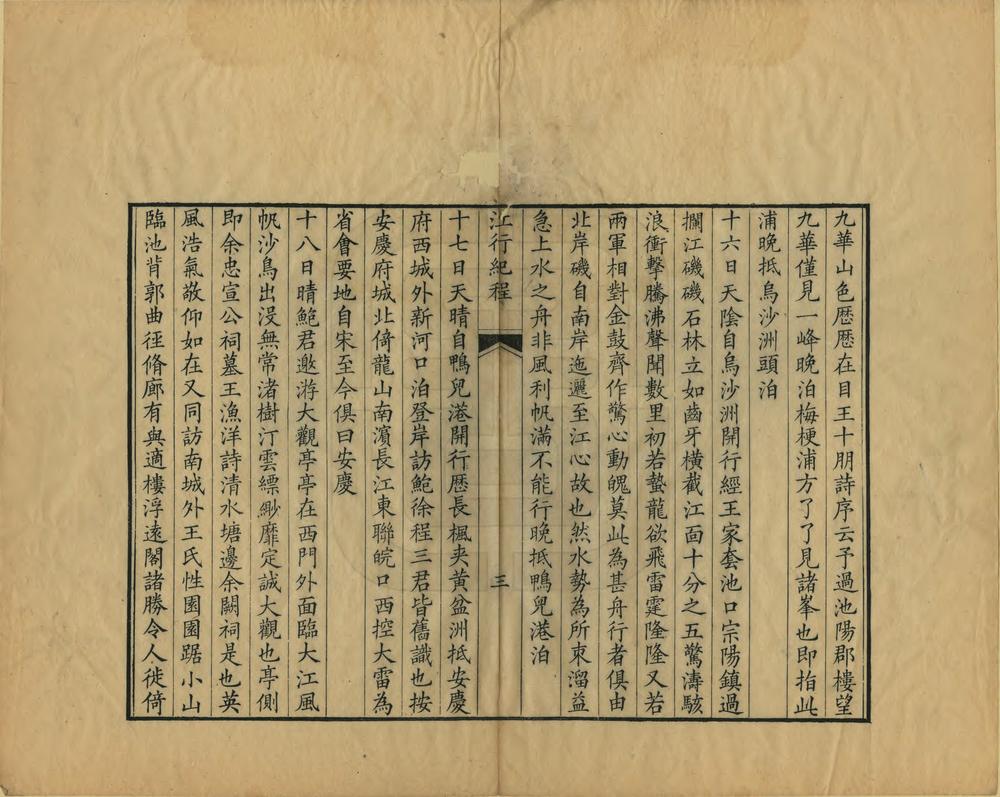 九華山色歴歴在目王十朋詩序云予過池陽郡樓望
九華僅見一峰晚泊梅梗浦方了了見諸峯也即指此
浦晚抵烏沙洲頭泊
十六日天陰自烏沙洲開行經王家套池口宗陽鎮過
攔江磯磯石林立如齒牙橫截江面十分之五驚濤駭
浪衝擊騰沸聲聞數里初若蟄龍欲飛雷霆隆隆又若
兩軍相對金鼓齊作驚心動魄莫此為甚舟行者俱由
北岸磯自南岸迤邐至江心故也然水勢為所束溜益
急上水之舟非風利帆滿不能行晚抵鴨兒港泊
江行紀程
三
十七日天晴自鴨兒港開行歴長楓夾黄盆洲抵安慶
府西城外新河口泊登岸訪鮑徐程三君皆舊識也按
安慶府城北倚龍山南濱長江東聯皖口西控大雷為
省會要地自宋至今俱曰安慶
十八日晴鮑君邀游大觀亭亭在西門外面臨大江風
帆沙鳥出没無常渚樹汀雲縹緲靡定誠大觀也亭側
即余忠宣公祠墓王漁洋詩清水塘邊余闕祠是也英
風浩氣敬仰如在又同訪南城外王氏性園園踞小山
臨池背郭曲徑脩廊有與適樓浮遠閣諸勝令人徙倚